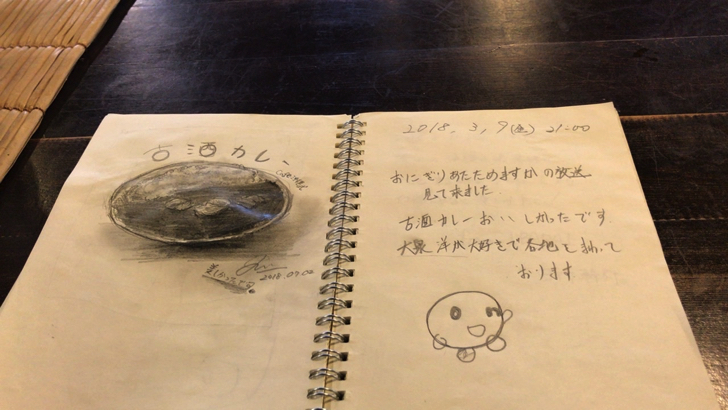 古酒カレー
2018.03.02
2018.3.9(金) 21:00
おにぎりあたためますかの放送
見て来ました。
古酒カレーおいしかったです。
大泉洋が大好きで各地をまわって
おります